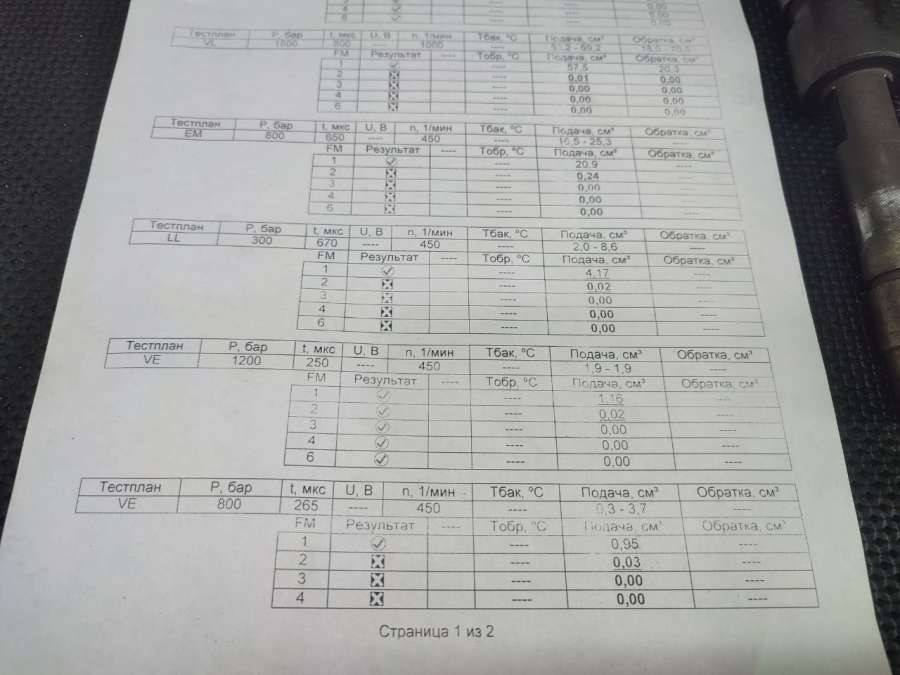 4 0,00
6 0,00
Тестплан P, бар t, мкс U, В n, 1/мин Тбак, ºС Подача, см³ Обратка, см³
VL 1000
FM Результат ---- Тобр, ºС Подача, см³ Обратка, см³
1 ---- 57,5 20,3
2 ---- 0,01 0,00
3 ---- 0,00 0,00
4 ---- 0,00 0,00
6 ---- 0,00 0,00
Тестплан P, бар t, мкс U, В n, 1/мин Тбак, ºС Подача, см³ Обратка, см³
EM 800 650 ---- 450 ---- 16,5 - 25,3 ----
FM Результат ---- Тобр, ºС Подача, см³ Обратка, см³
1 ---- 20,9 ----
2 ---- 0,24 ----
3 ---- 0,00 ----
4 ---- 0,00 ----
6 ---- 0,00 ----
Тестплан P, бар t, мкс U, В n, 1/мин Тбак, ºС Подача, см³ Обратка, см³
LL 300 670 ---- 450 ---- 2,0 - 8,6 ----
FM Результат ---- Тобр, ºС Подача, см³ Обратка, см³
1 ---- 4,17 ----
2 ---- 0,02 ----
3 ---- 0,00 ----
4 ---- 0,00 ----
6 ---- 0,00 ----
Тестплан P, бар t, мкс U, В n, 1/мин Тбак, ºС Подача, см³ Обратка, см³
VE 1200 250 ---- 450 ---- 1,9 - 1,9 ----
FM Результат ---- Тобр, ºС Подача, см³ Обратка, см³
1 ---- 1,16 ----
2 ---- 0,02 ----
3 ---- 0,00 ----
4 ---- 0,00 ----
6 ---- 0,00 ----
Тестплан P, бар t, мкс U, В n, 1/мин Тбак, ºС Подача, см³ Обратка, см³
VE 800 265 ---- 450 ---- 0,3 - 3,7 ----
FM Результат ---- Тобр, ºС Подача, см³ Обратка, см³
1 ---- 0,95 ----
2 ---- 0,03 ----
3 ---- 0,00 ----
4 ---- 0,00 ----
Страница 1 из 2